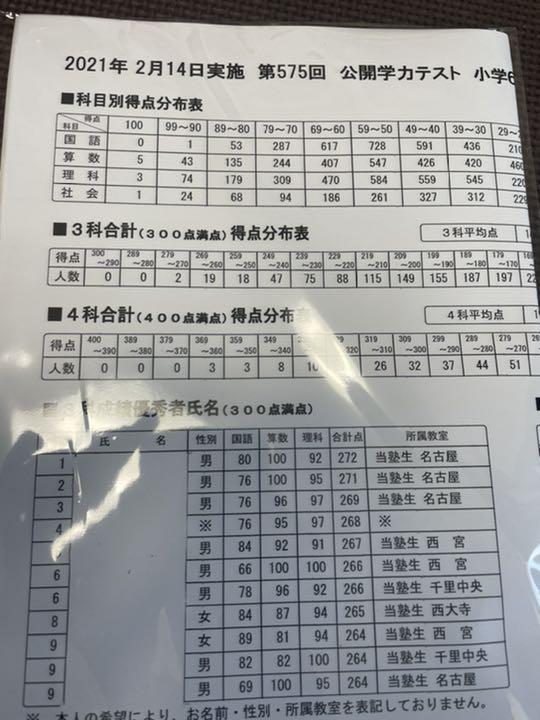 2021年 2月14日実施 第575回 公開学力テスト 小学6
■科目別得点分布表
科目 得点 100 99~90 89~80 79~70 69~60 59~50 49~40 39~30 29~
国語 0 1 53 287 617 728 591 436 210
算数 5 43 135 244 407 547 426 420 460
理科 3 74 179 309 470 584 559 545 220
社会 1 24 68 94 186 261 327 312
■3科合計(300点満点)得点分布表 3科平均点
得点 300~290 289~280 279~270 269~260 259~250 249~240 239~230 229~220 219~210 209~200 199~190 189~180 179~170
人数 0 0 2 19 18 47 75 88 115 149 155 187 197
■4科合計(400点満点)得点分布表 4科平均点
得点 400~390 389~380 379~370 369~360 359~350 349~340 319~310 309~300 299~290 289~280 279~270
人数 0 0 0 3 3 8 26 32 37 44 51
成績優秀者氏名(300点満点)
氏 名 性別 国語 算数 理科 合計点 所属教室
1 男 80 100 92 272 当塾生 名古屋
2 男 76 100 95 271 当塾生 名古屋
3 男 76 96 97 269 当塾生 名古屋
4 ※ 76 95 97 268 ※
男 84 92 91 267 当塾生 西 宮
6 男 66 100 100 266 当塾生 西 宮
6 男 78 96 92 266 当塾生 千里中央
8 女 84 87 94 265 当塾生 西大寺
9 女 89 81 94 264 当塾生 西 宮
9 男 82 82 100 264 当塾生 千里中央
9 男 69 100 95 264 当塾生 名古屋
※ 本人の希望により、お名前・性別・所属教室を表記しておりません。